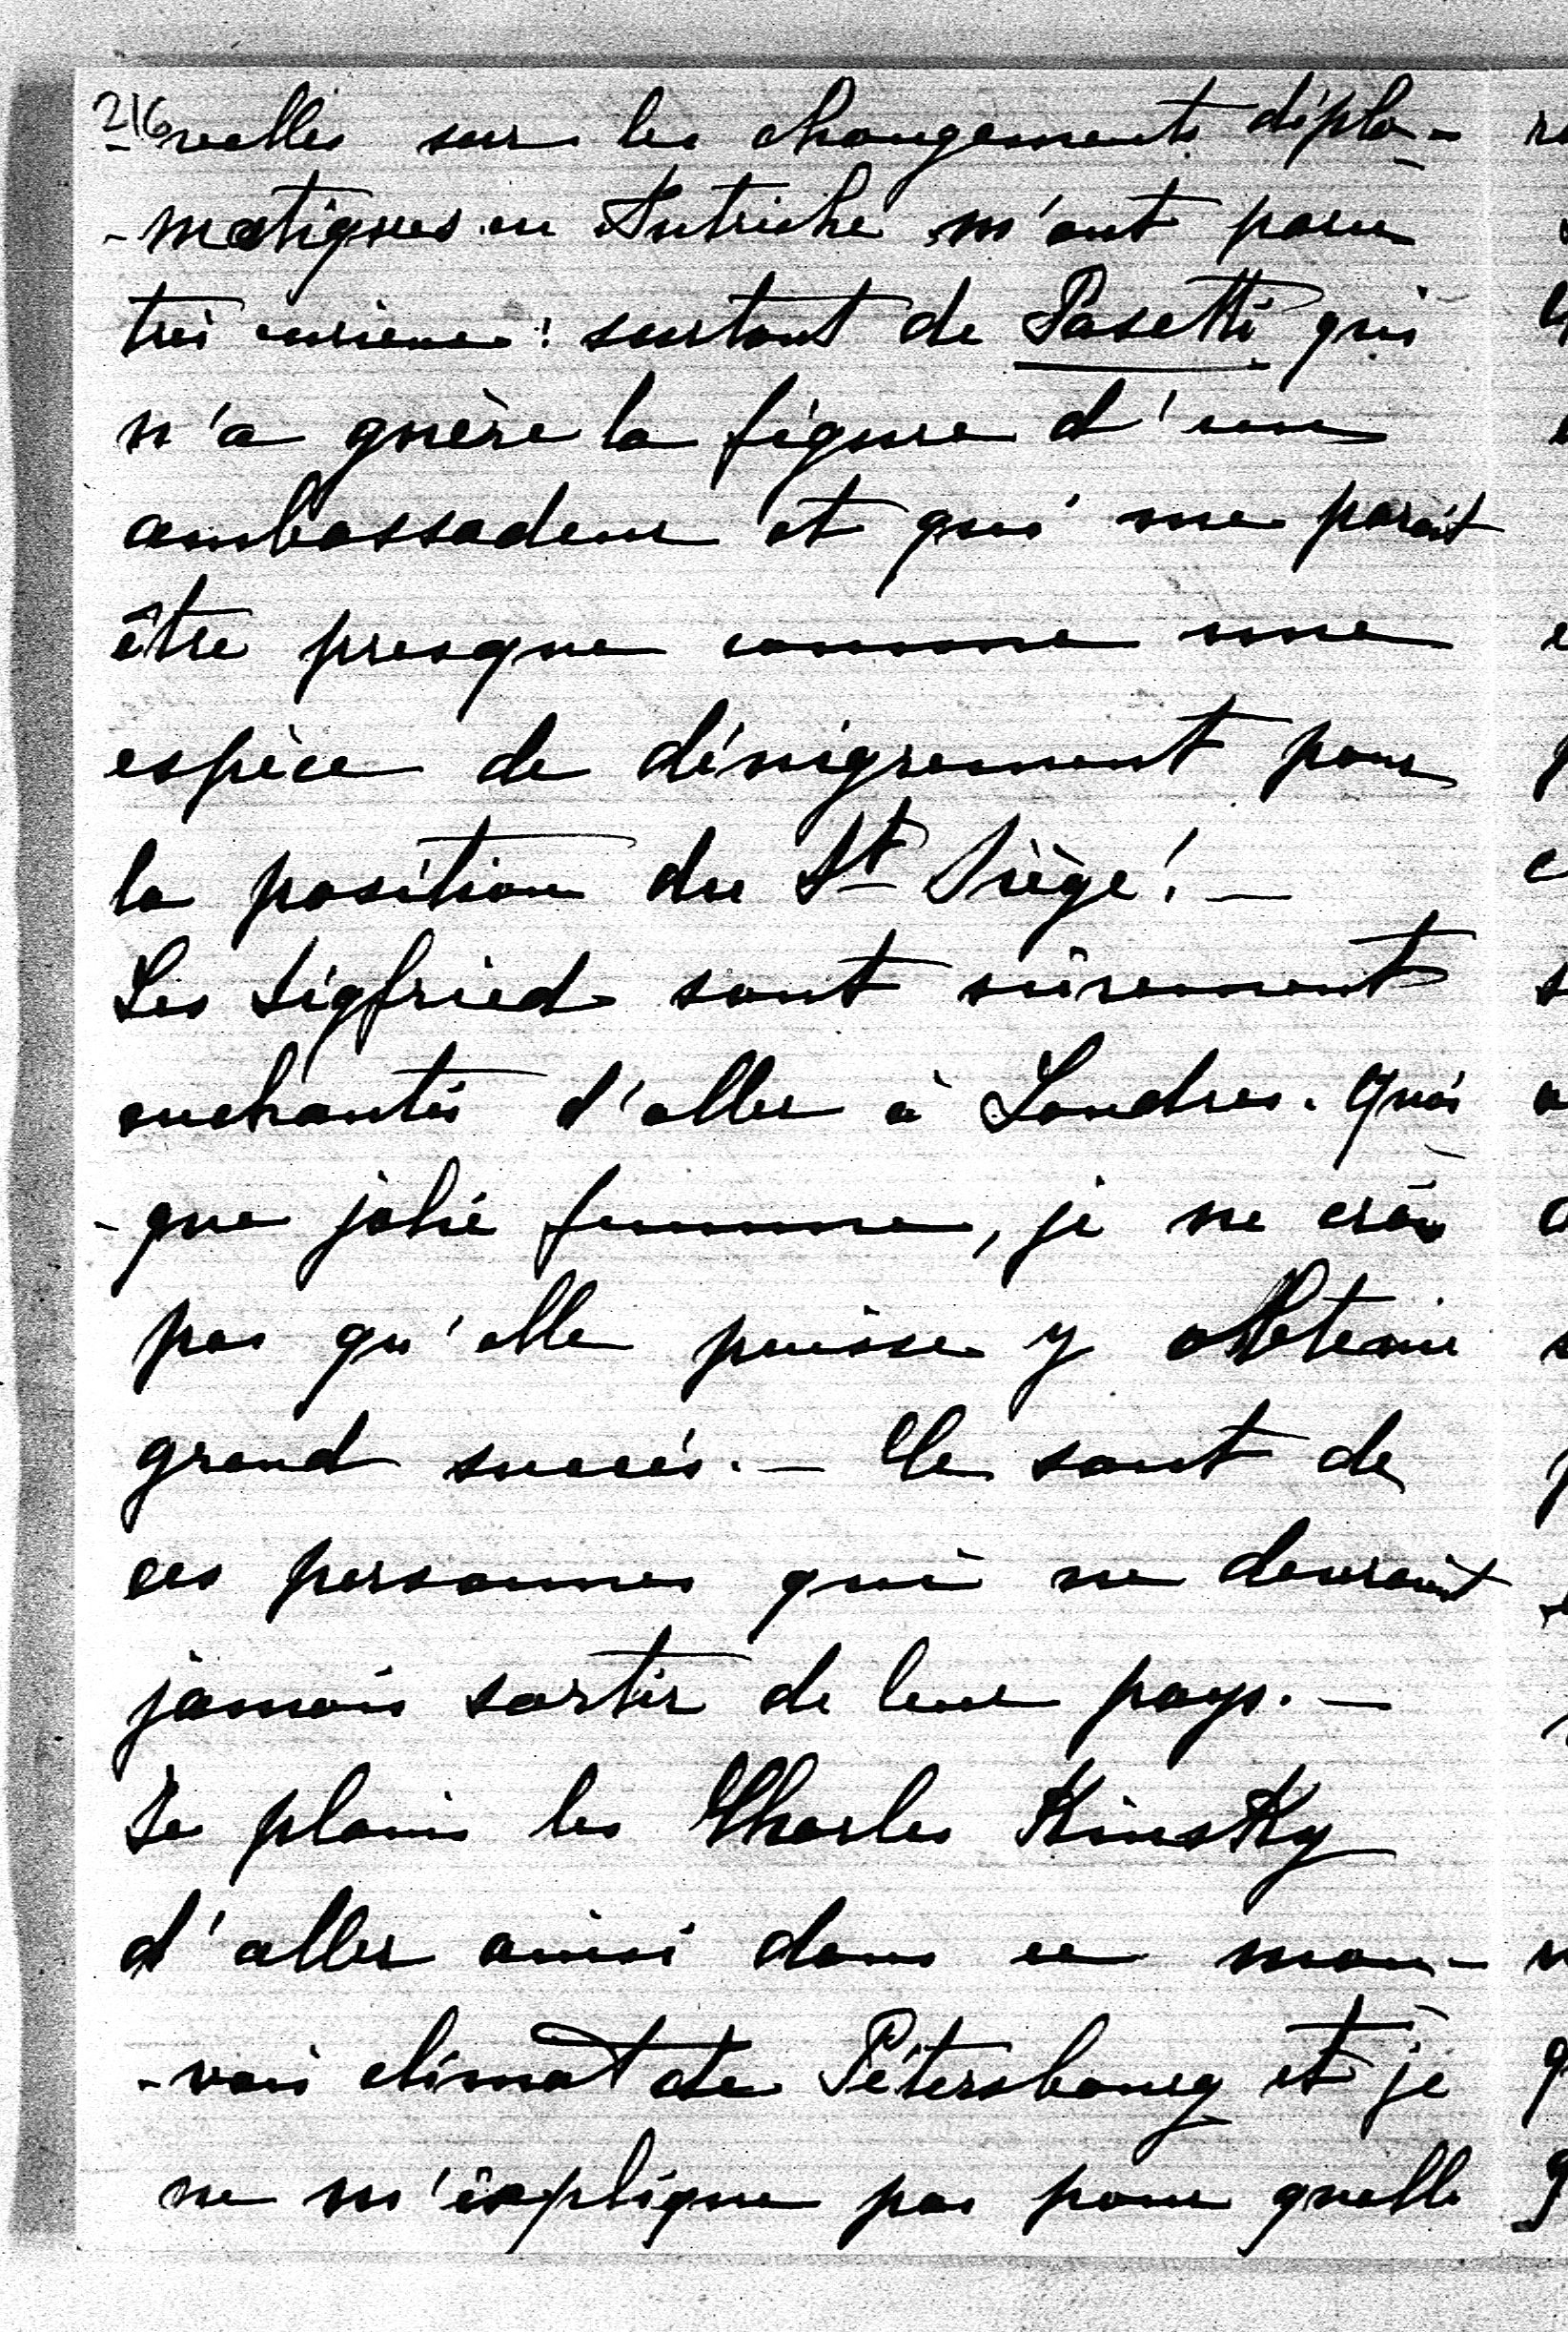 216
-velles sur les changements diplo-
-matiques en Autriche m'ont paru
très curieux: surtout de Pasetti qui
n'a guère la figure d'un
ambassadeur et qui me parait
être presque comme une
espèce de dénigrement pour
la position du St Siège! —
Les Sigfried sont sûrement
enchantés d'aller à Londres. Quoi
-que jolie femme, je ne crois
pas qu'elle puisse y obtenir
grand succès. — Ce sont de
ces personnes qui ne devraient
jamais sortir de leur pays. —
Je plains les Charles Kinsky
d'aller ainsi dans ce mau-
-vais climat de Pétersbourg et je
ne m'explique pas pour quelle